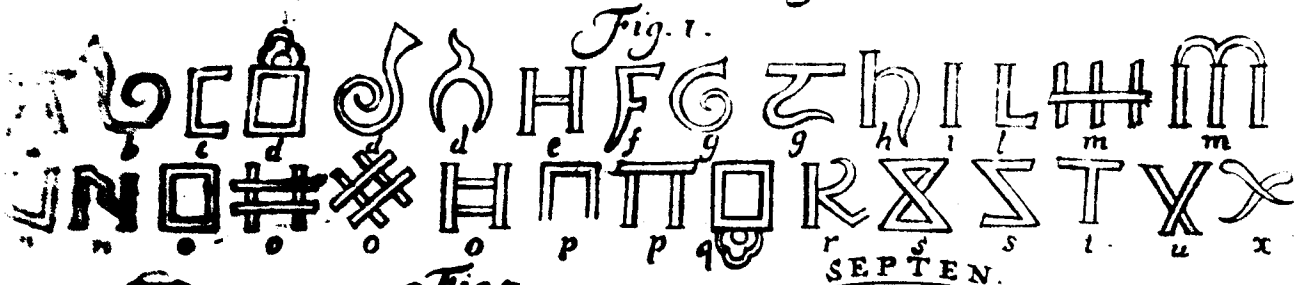 Fig. 1.
b c d d d e f g g h i l m m
n n o o o o p p q r s s t u x
SEPTEN.
Fig